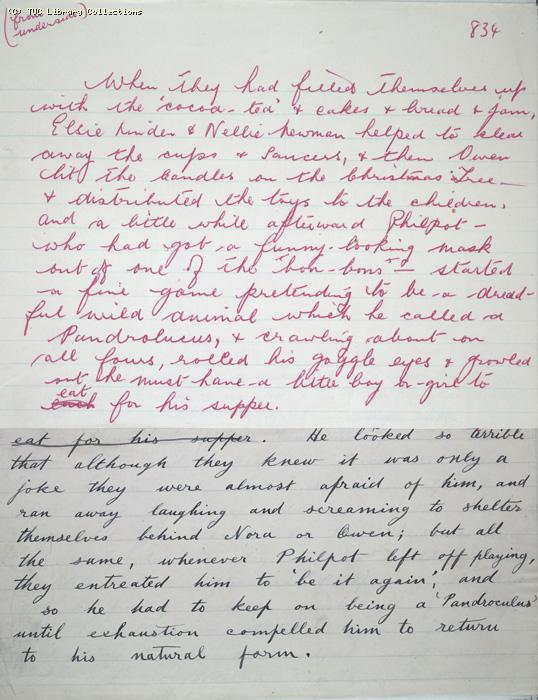 (c) TUC Library Collections
(from
underside)
834
When they had filled themselves up
with the 'cocoa-tea' & cakes & bread & jam,
Elsie Linden & Nellie Newman helped to clear
away the cups & saucers, & then Owen
lit the candles on the Christmas Tree—
& distributed the toys to the children.
And a little while afterward Philpot—
who had got a funny-looking mask
out of one of the bon-bons— started
a fine game pretending to be a dread-
ful wild animal which he called a
Pandroculus, & crawling about on
all fours, rolled his goggle eyes & growled
out he must have a little boy or girl to
eat
for his supper.
eat for his supper. He looked so terrible
that although they knew it was only a
joke they were almost afraid of him, and
ran away laughing and screaming to shelter
themselves behind Nora or Owen; but all
the same, whenever Philpot left off playing,
they entreated him to 'be it again', and
so he had to keep on being a 'Pandroculus'
until exhaustion compelled him to return
to his natural form.